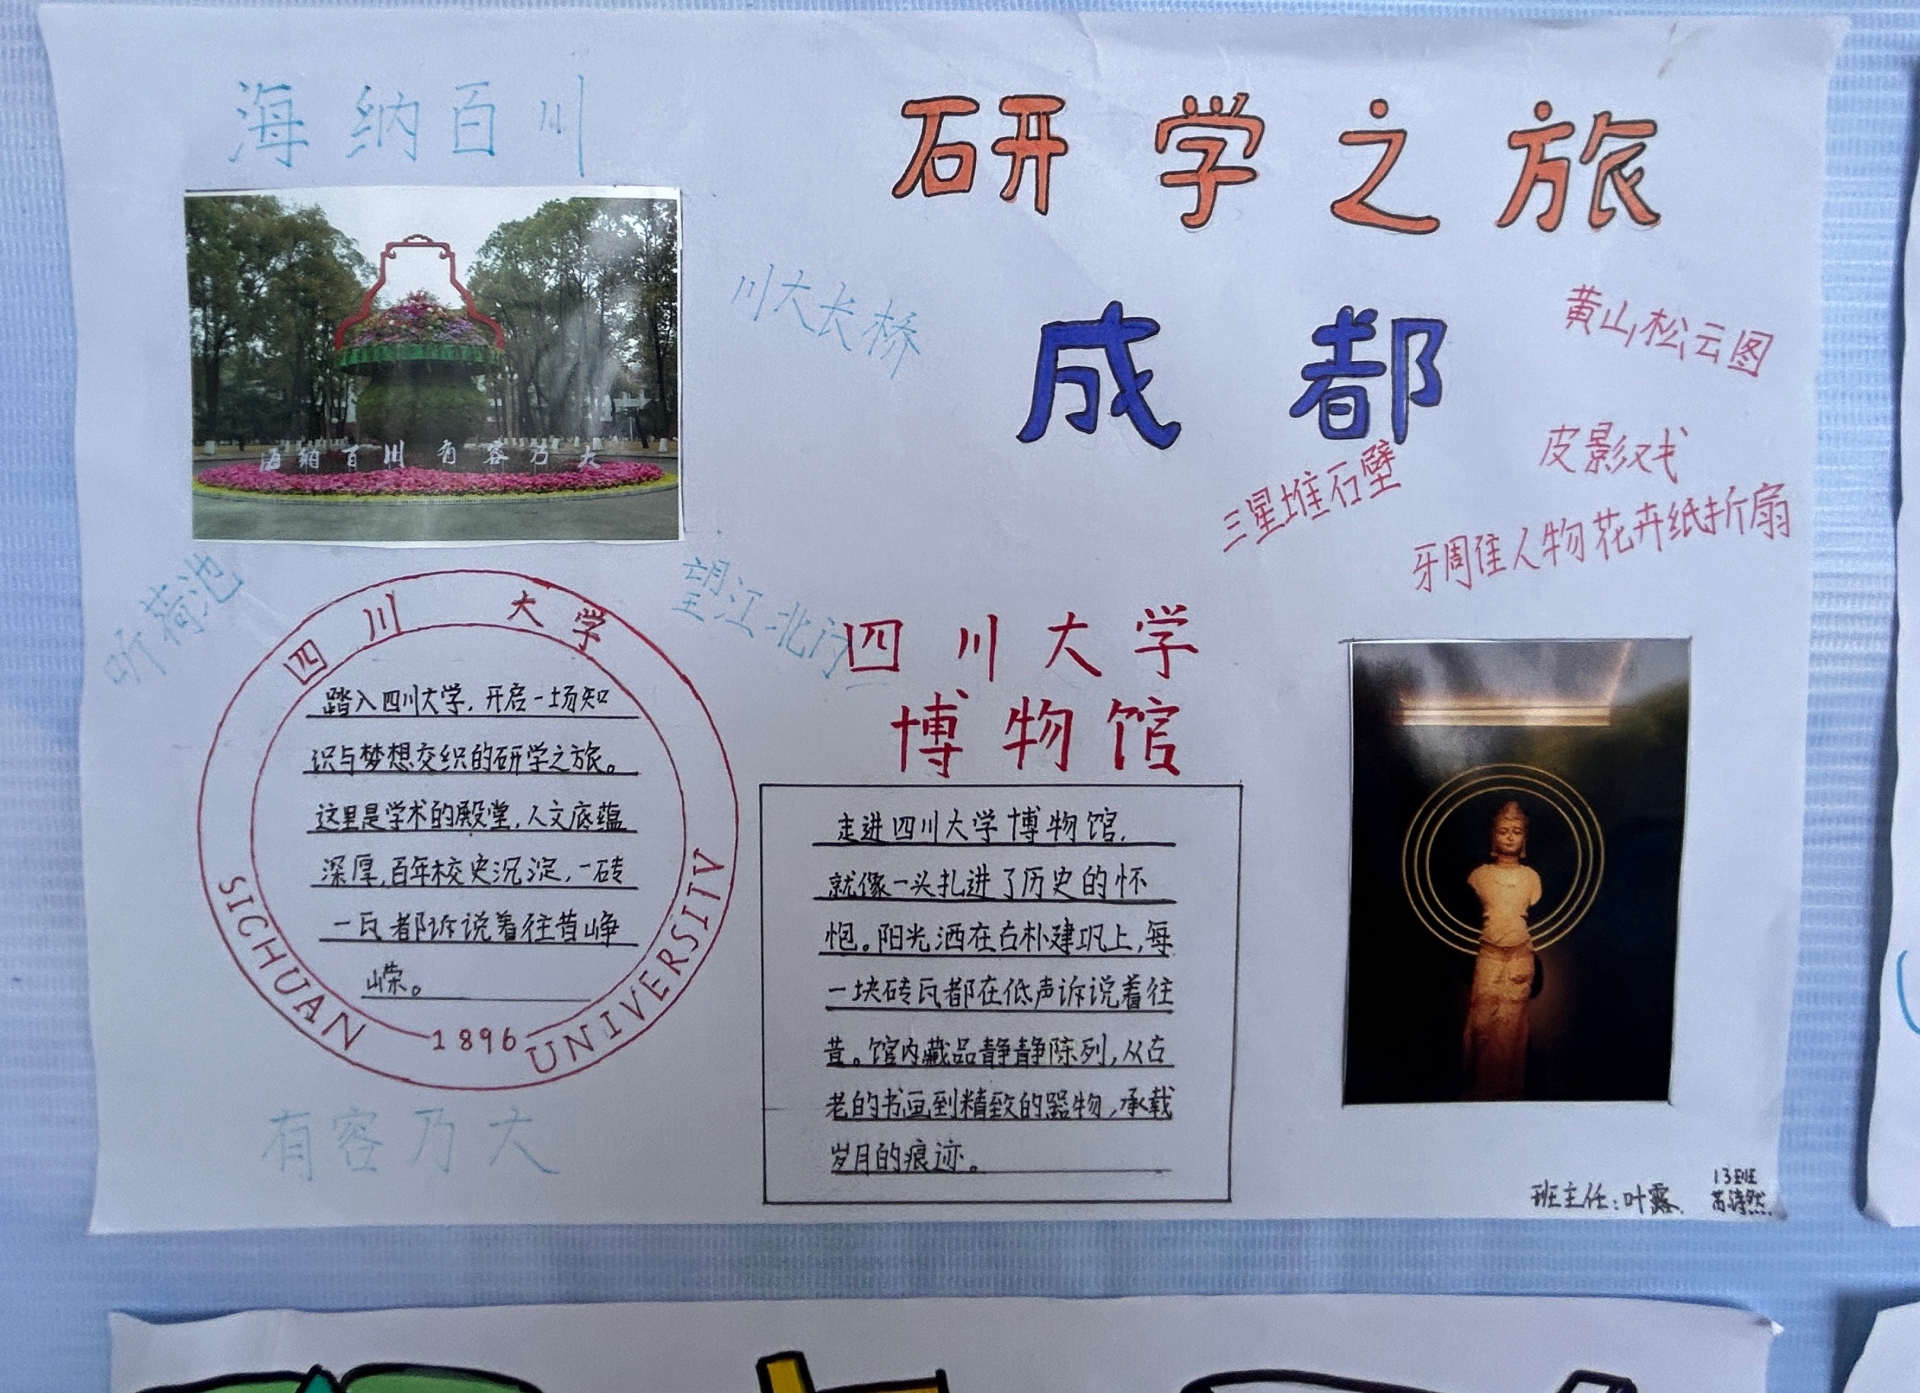 海纳百川
研学之旅
成都
川大长桥
黄山松云图
皮影戏
三星堆石壁
牙周佳人物花卉纸折扇
海纳百川 有容乃大
听荷池
望江北门
四川大学
踏入四川大学,开启一场知
识与梦想交织的研学之旅。
这里是学术的殿堂,人文底蕴
深厚,百年校史沉淀,一砖
一瓦都诉说着往昔峥
嵘。
SICHUAN
1896
UNIVERSIIV
有容乃大
四川大学
博物馆
走进四川大学博物馆,
就像一头扎进了历史的怀
抱。阳光洒在古朴建巩上,每
一块砖瓦都在低声诉说着往
昔。馆内藏品静静陈列,从古
老的书画到精致的器物,承载
岁月的痕迹。
班主任:叶露
13班
苏诗然